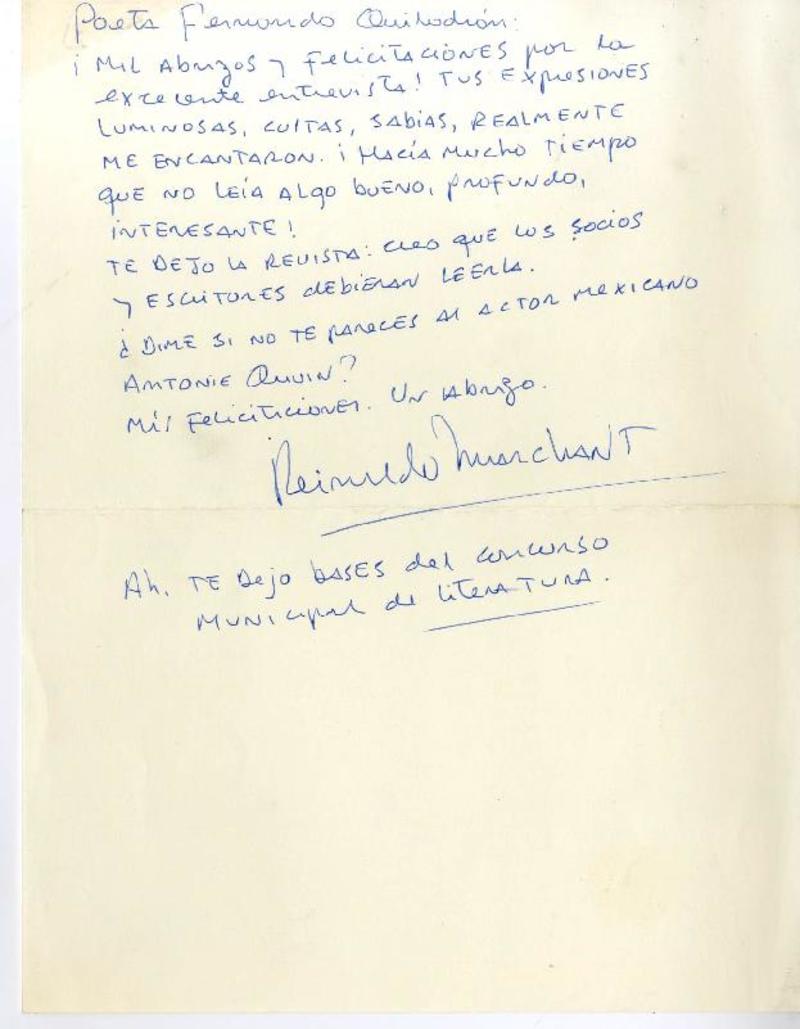 Poeta Fernando Quilodrán:
¡ Mil Abrazos y Felicitaciones por la
excecente entrevista! Tus expresiones
luminosas, cultas, sabias, realmente
me encantaron. ¡ Hacía mucho tiempo
que no leía algo bueno, profundo,
interesante!
Te dejo la revista: creo que los socios
y escritores debieran leerla.
¿ Dime si no te pareces al actor mexicano
Antonie Quuin?
Mis felicitaciones. Un abrazo.
Reinaldo Marchant
Ah. Te dejo bases del concurso
municipal de literatura.